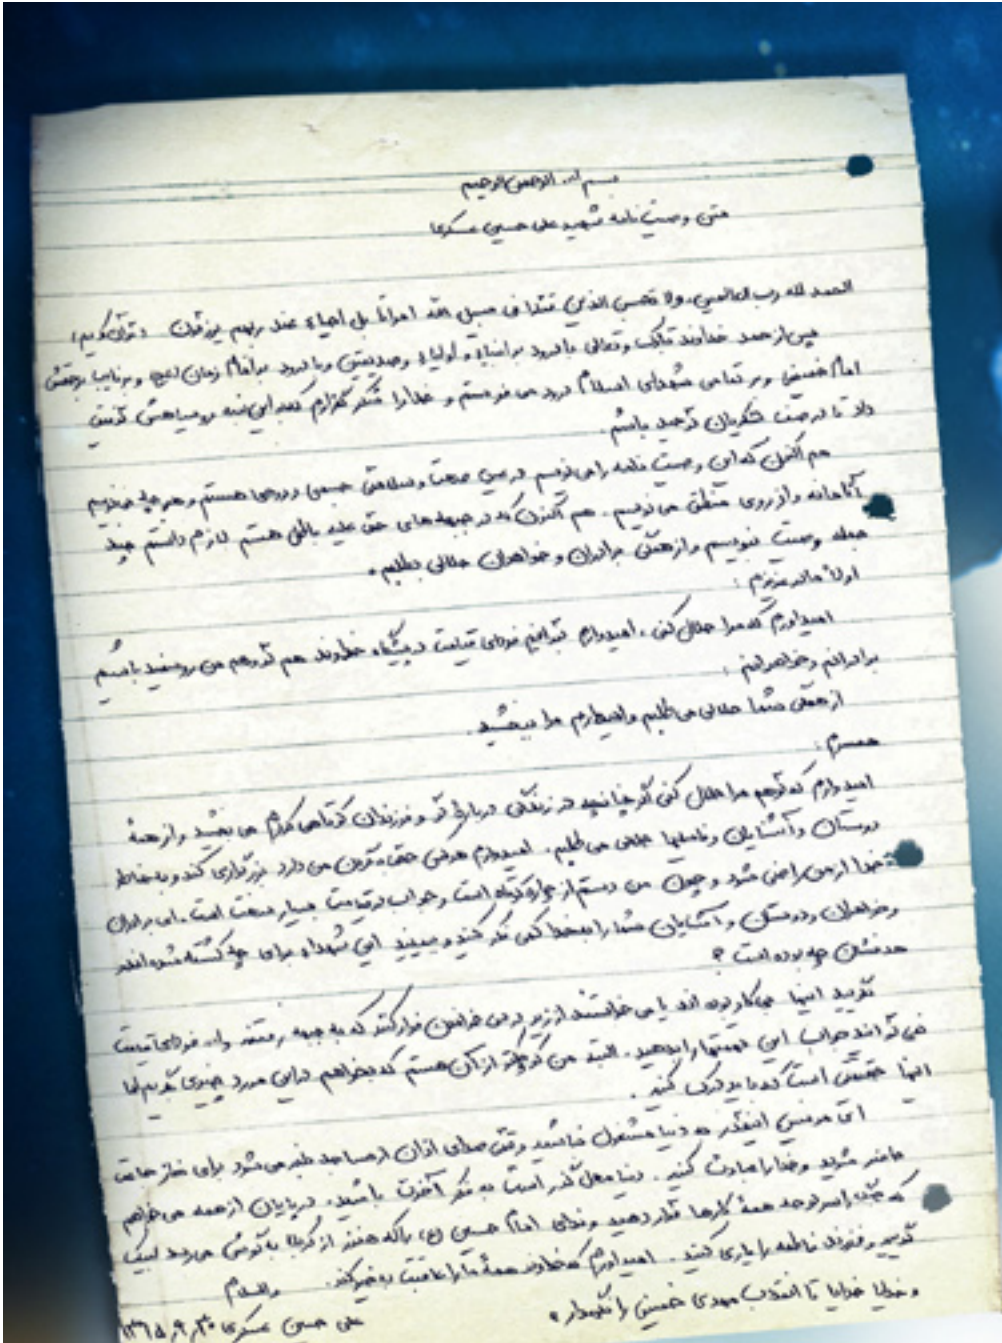 بسم الله الرحمن الرحیم
متن وصیت نامه شهید علی حسین عسکری
الحمد لله رب العالمین. ولا تحسبن الذین قتلوا فی سبیل الله امواتاً بل احیاء عند ربهم یرزقون «قرآن کریم»
پس از حمد خداوند تبارک و تعالی با درود بر انبیاء و اولیاء و صدیقین و با درود بر امام زمان (عج) و بر نایب برحقش
امام خمینی و بر تمامی شهدای اسلام درود می فرستم و خدا را شکر گزارم که به این بنده روسیاهش توفیق
داد تا در صف لشکریان توحید باشم.
هم اکنون که این وصیت نامه را می نویسم در عین صحت و سلامتی جسمی و روحی هستم و هر چه مینویسم
آگاهانه و از روی منطق می نویسم. هم اکنون که در جبهه های حق علیه باطل هستم لازم دانستم چند
جمله وصیت بنویسم و از همگی برادران و خواهران حلالی بطلبم.
اولاً مادر عزیزم:
امیدوارم که مرا حلال کنی، امیدوارم بتوانیم فردای قیامت در پیشگاه خداوند هم تو و هم من روسفید باشیم
برادرانم و خواهرانم:
از همگی شما حلالی می طلبم و امیدوارم مرا ببخشید.
همسرم:
امیدوارم که تو هم مرا حلال کنی اگر چنانچه در زندگی درباره تو و فرزندان کوتاهی کردم می بخشید و از همهٔ
دوستان و آشنایان و فامیلها حلالی می طلبم. امیدوارم هر کس حقی به گردن من دارد بزرگواری کند و به خاطر
خدا از من راضی شود و چون من دستم از کوتاه است و جواب در قیامت بسیار سخت است. ای برادران
و خواهران و دوستان و آشنایان شما را بخدا کمی فکر کنید و ببینید این شهداء برای چه کشته شده اند
هدفشان چه بوده است؟
نگویید اینها بی کار بوده اند یا می خواستند از زیر فرار کنند که به جبهه رفتند والله فردای قیامت
نمی توانید جواب این تهمتها را بدهید. البته من کوچکتر از آن هستم که بخواهم در این مورد چیزی بگویم اما
اینها حقیقتی است که باید درک کنید.
ای مردم اینقدر به دنیا مشغول نباشید وقتی صدای اذان از مساجد بلند می شود برای نماز جماعت
حاضر شوید و خدا را عبادت کنید. دنیا محل گذر است به فکر آخرت باشید. در پایان از همه می خواهم
که جبهه را سر لوحه همهٔ کارها قرار دهید و ندای امام حسین (ع) را که هنوز از کربلا به گوش می رسد لبیک
گویید و فرزند فاطمه را یاری کنید. امیدوارم که خداوند همهٔ ما را عاقبت به خیر کند. والسلام
«خدایا خدایا تا انقلاب مهدی خمینی را نگهدار» علی حسین عسکری ۱۳۶۵/۹/۳۰